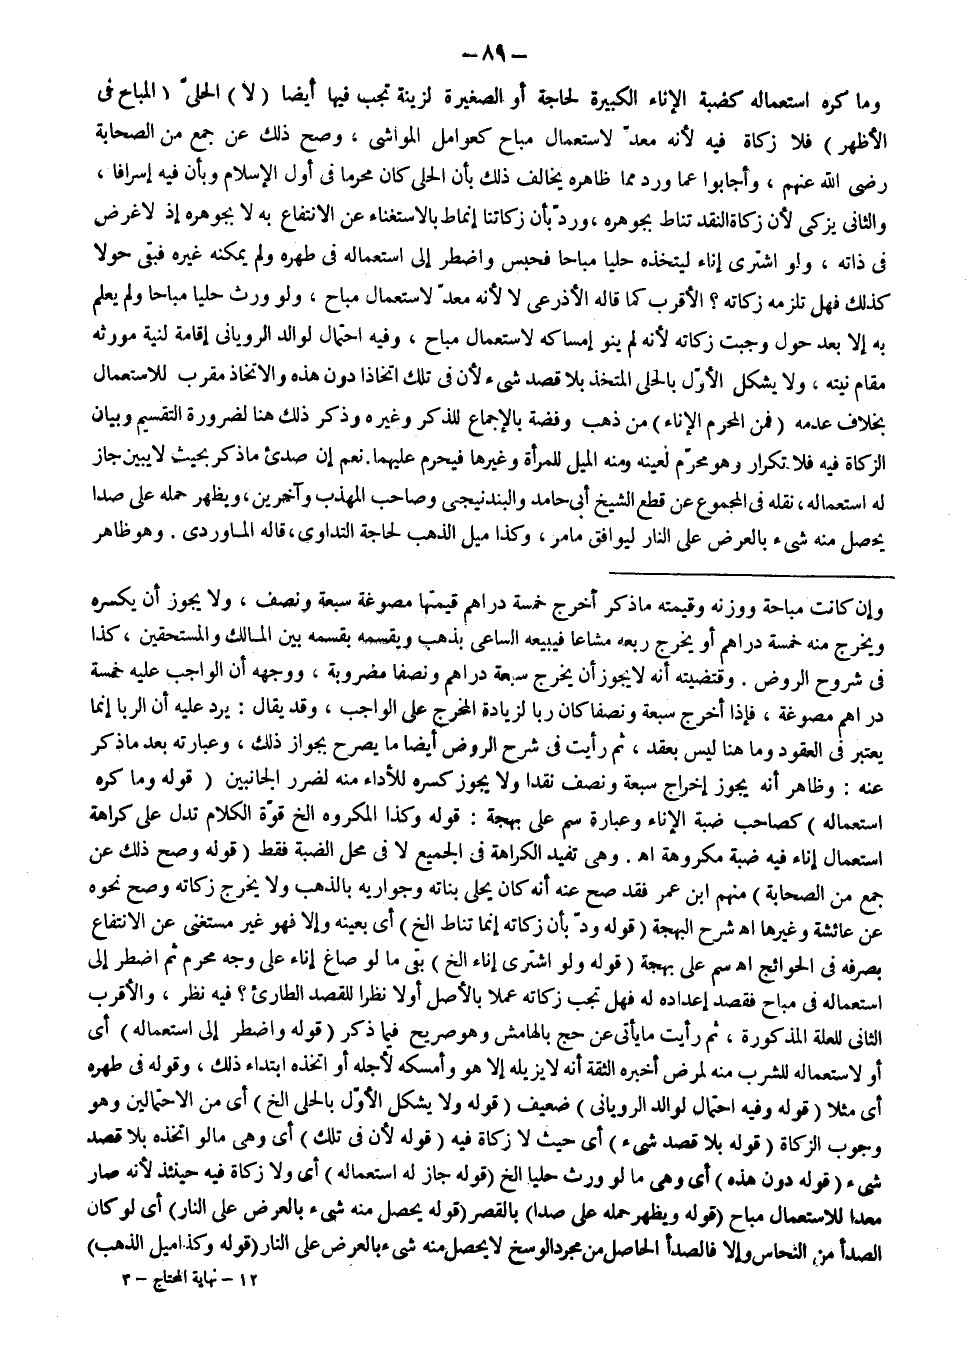 – ٨٩ –
وما كره استعماله كضبة الإناء الكبيرة لحاجة أو الصغيرة لزينة تجب فيها أيضا ( لا ) الحلىّ ( المباح فى
الأظهر ) فلا زكاة فيه لأنه معدّ لاستعمال مباح كعوامل المواشى ، وصح ذلك عن جمع من الصحابة
رضى الله عنهم ، وأجابوا عما ورد مما ظاهره يخالف ذلك بأن الحلى كان محرما فى أول الإسلام وبأن فيه إسرافا ،
والثانى يزكى لأن زكاة النقد تناط بجوهره ، وردّ بأن زكاتنا إنماط بالاستغناء عن الانتفاع به لا بجوهره إذ لاغرض
فى ذاته ، ولو اشترى إناء ليتخذه حليا مباحا فحبس واضطر إلى استعماله فى طهره ولم يمكنه غيره فبقى حولا
كذلك فهل تلزمه زكاته ؟ الأقرب كما قاله الأذرعى لا لأنه معدّ لاستعمال مباح ، ولو ورث حليا مباحا ولم يعلم
به إلا بعد حول وجبت زكاته لأنه لم ينو إمساكه لاستعمال مباح ، وفيه احتمال لوالد الرويانى إقامة لنية مورثه
مقام نيته ، ولا يشكل الأوّل بالحلى المتخذ بلا قصد شىء لأن فى تلك اتخاذا دون هذه والاتخاذ مقرب للاستعمال
بخلاف عدمه ( فمن المحرم الإناء ) من ذهب وفضة بالإجماع للذكر وغيره وذكر ذلك هنا لضرورة التقسيم وبيان
الزكاة فيه فلا تكرار وهو محرّم لعينه ومنه الميل للمرأة وغيرها فيحرم عليهما. نعم إن صدئ ماذكر بحيث لايبين جاز
له استعماله ، نقله فى المجموع عن قطع الشيخ أبى حامد والبندنيجى وصاحب المهذب وآخرين ، ويظهر حمله على صدا
يحصل منه شىء بالعرض على النار ليوافق مامر ، وكذا ميل الذهب لحاجة التداوى ، قاله الماوردى . وهو ظاهر
وإن كانت مباحة ووزنه وقيمته ماذكر أخرج خمسة دراهم قيمتها مصوغة سبعة ونصف ، ولا يجوز أن يكسره
ويخرج منه خمسة دراهم أو يخرج ربعه مشاعا فيبيعه الساعى بذهب ويقسمه بقسمه بين المالك والمستحقين ، كذا
فى شروح الروض . وقتضيته أنه لايجوز أن يخرج سبعة دراهم ونصفا مضروبة ، ووجهه أن الواجب عليه خمسة
دراهم مصوغة ، فإذا أخرج سبعة ونصفا كان ربا لزيادة المخرج على الواجب ، وقد يقال : يرد عليه أن الربا إنما
يعتبر فى العقود وما هنا ليس بعقد ، ثم رأيت فى شرح الروض أيضا ما يصرح بجواز ذلك ، وعبارته بعد ماذكر
عنه : وظاهر أنه يجوز إخراج سبعة ونصف نقدا ولا يجوز كسره للأداء منه لضرر الجانبين ( قوله وما كره
استعماله ) كصاحب ضبة الإناء وعبارة سم على بهجة : قوله وكذا المكروه الخ قوّة الكلام تدل على كراهة
استعمال إناء فيه ضبة مكروهة اه . وهى تفيد الكراهة فى الجميع لا فى محل الضبة فقط ( قوله وصح ذلك عن
جمع من الصحابة ) منهم ابن عمر فقد صح عنه أنه كان يحلى بناته وجواريه بالذهب ولا يخرج زكاته وصح نحوه
عن عائشة وغيرها اه شرح البهجة ( قوله ودّ بأن زكاته إنما تناط الخ ) أى بعينه وإلا فهو غير مستغنى عن الانتفاع
بصرفه فى الحوائج اه سم على بهجة ( قوله ولو اشترى إناء الخ ) بقى ما لو صاغ إناء على وجه محرم ثم اضطر إلى
استعماله فى مباح فقصد إعداده له فهل تجب زكاته عملا بالأصل أولا نظرا للقصد الطارئ ؟ فيه نظر ، والأقرب
الثانى للعلة المذكورة ، ثم رأيت مايأتى عن حج بالهامش وهو صريح فيما ذكر ( قوله واضطر إلى استعماله ) أى
أو لاستعماله للشرب منه لمرض أخبره الثقة أنه لايزيله إلا هو وأمسكه لأجله أو اتخذه ابتداء ذلك ، وقوله فى طهره
أى مثلا ( قوله وفيه احتمال لوالد الرويانى ) ضعيف ( قوله ولا يشكل الأوّل بالحلى الخ ) أى من الاحتمالين وهو
وجوب الزكاة ( قوله بلا قصد شىء ) أى حيث لا زكاة فيه ( قوله لأن فى تلك ) أى وهى مالو اتخذه بلا قصد
شىء ( قوله دون هذه ) أى وهى ما لو ورث حليا الخ ( قوله جاز له استعماله ) أى ولا زكاة فيه حينئذ لأنه صار
معدا للاستعمال مباح ( قوله ويظهر حمله على صدا ) بالقصر ( قوله يحصل منه شىء بالعرض على النار ) أى لو كان
الصدأ من النحاس وإلا فالصدأ الحاصل من مجرد الوسخ لايحصل منه شىء بالعرض على النار ( قوله وكذا ميل الذهب )
١٢ – نهاية المحتاج – ٣